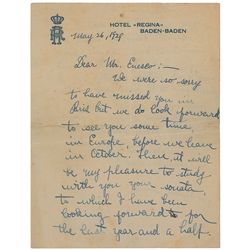 HOTEL »REGINA«
BADEN-BADEN
May 26, 1928
Dear Mr. Enesco:—
We were so sorry
to have missed you in
Paris but we do look forward
to see you some time,
in Europe, before we leave
in October. Then, it will
be my pleasure to study
with you your sonata
to which I have been
looking forward to for
the last year and a half.